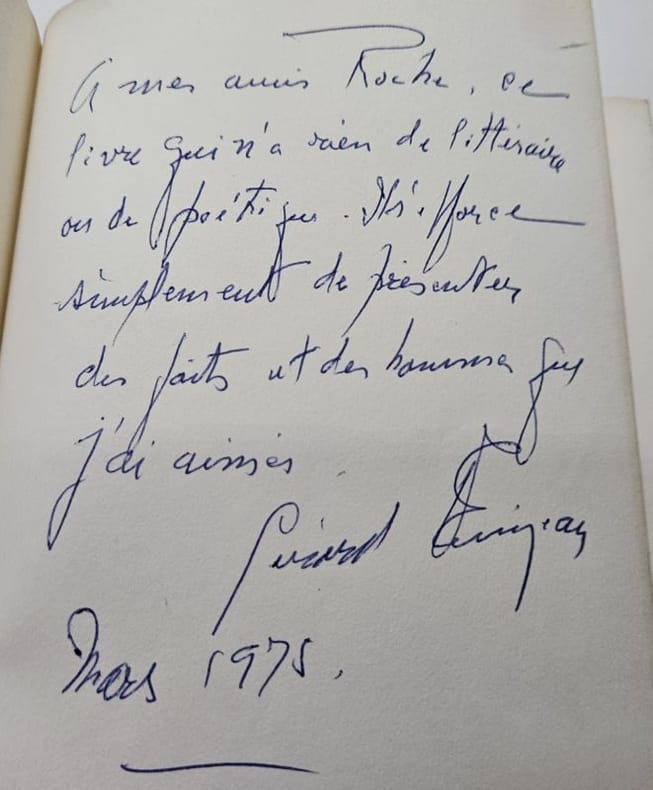 A mes amis Roche, ce
livre qui n'a rien de littéraire
ou de poétique. Il s'efforce
simplement de présenter
des faits et des hommes que
j'ai aimés
Gérard
Mars 1975.